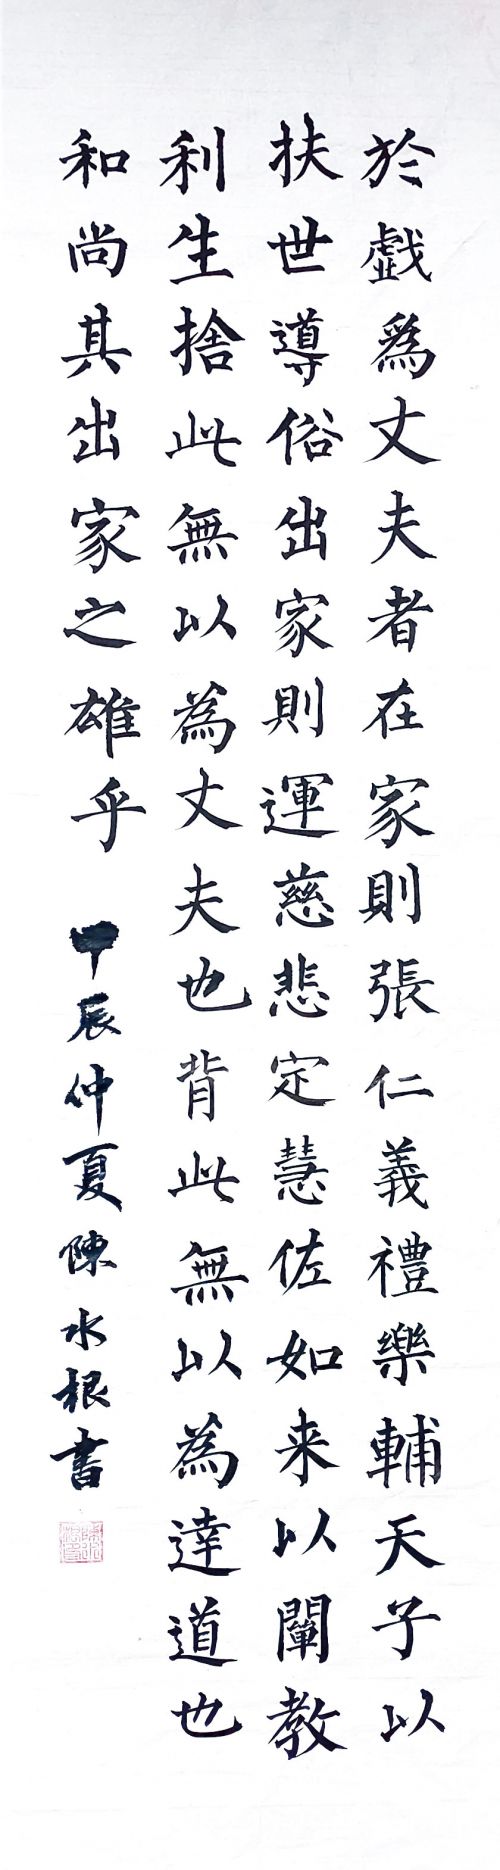 於戲爲丈夫者在家則張仁義禮樂輔天子以
扶世導俗出家則運慈悲定慧佐如来以闡教
利生捨此無以為丈夫也背此無以為達道也
和尚其出家之雄乎
甲辰仲夏陳水根書